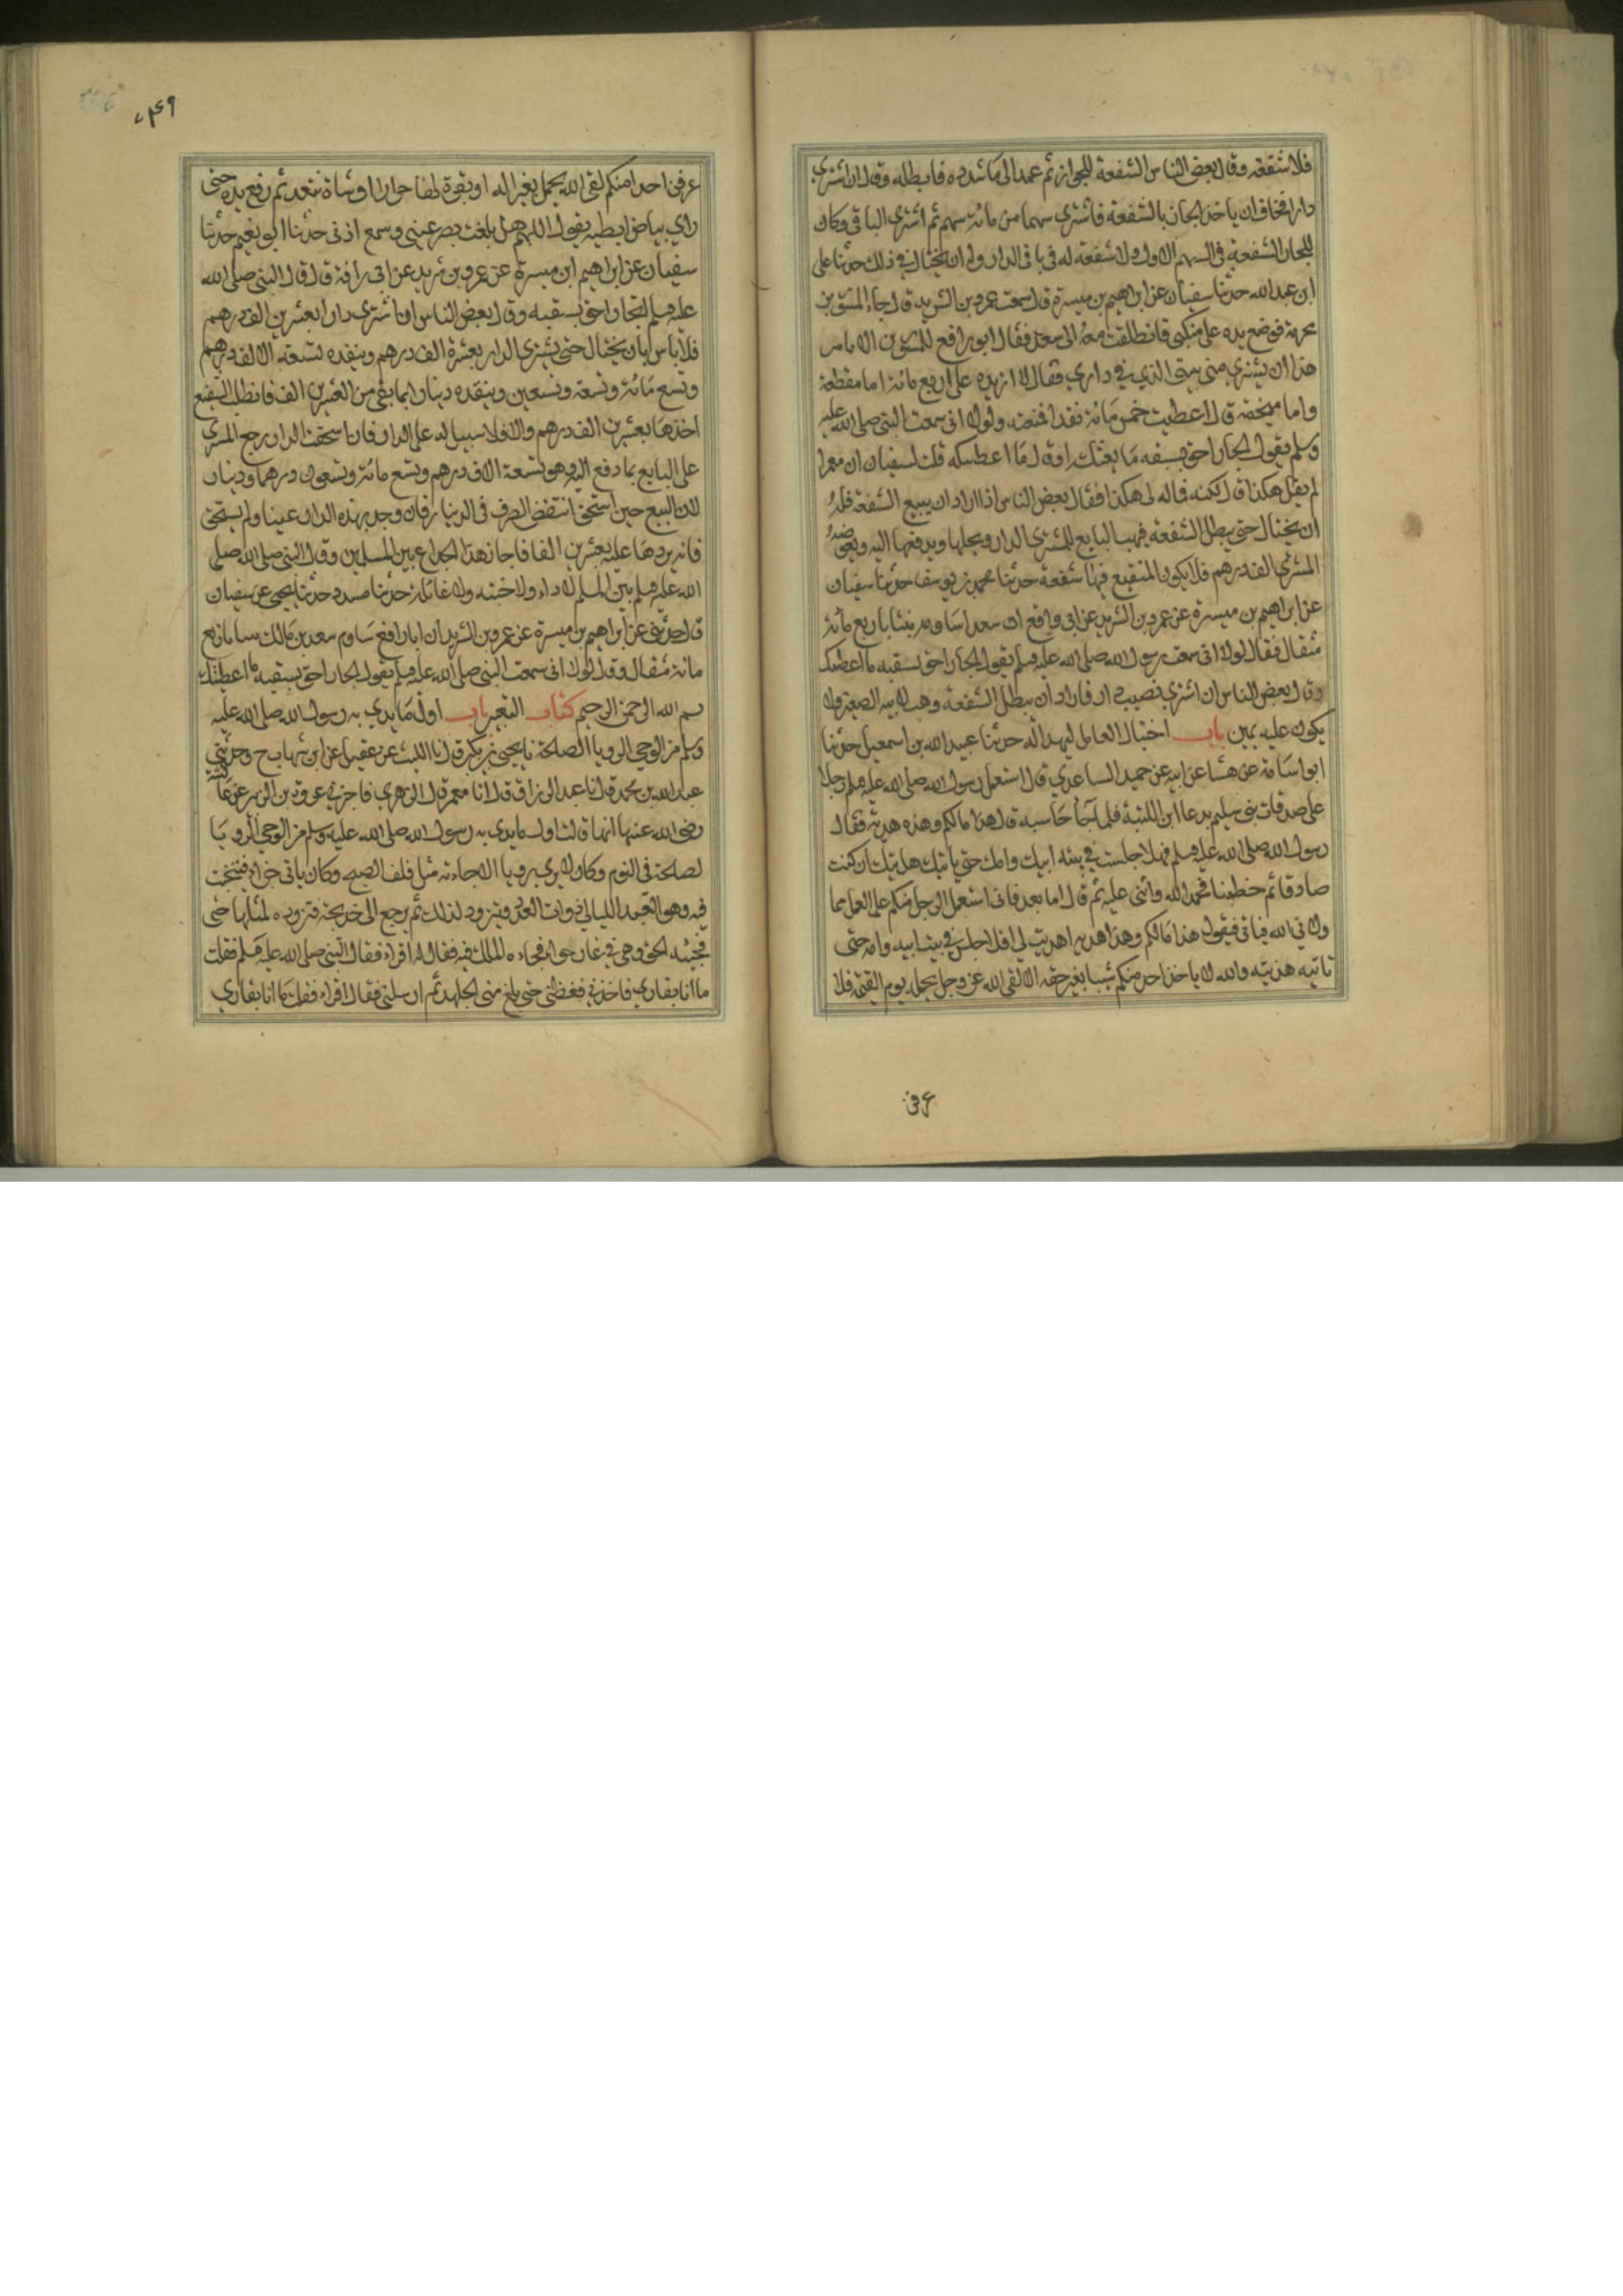 فلا شفعة وقال بعض الناس الشفعة للجوار ثم عمد الى ما شدده فابطله وقال ان اشترى
دارا فخاف ان ياخذ الجار بالشفعة فاشترى سهما من مائة سهم ثم اشترى الباقي وكان
للجار الشفعة في السهم الاول ولا شفعة له في باقي الدار وله ان يحتال في ذلك حدثنا على
ابن عبد الله حدثنا سفيان عن ابراهيم بن ميسرة قال سمعت عمرو بن الشريد قال جاء المسور بن
مخرمة فوضع يده على منكبي فانطلقت معه الى سعد فقال ابو رافع للمسور الا تامر
هذا ان يشتري مني بيتي الذي في داري فقال لا ازيده على اربع مائة اما مقطعة
واما منجمة قال اعطيت خمس مائة نقدا فمنعته ولولا اني سمعت النبي صلى الله عليه
وسلم يقول الجار احق بسقبه ما بعتك او قال ما اعطيتكه قلت لسفيان ان معمرا
لم يقل هكذا قال لكنه قاله لي هكذا فقال بعض الناس اذا اراد ان يبيع الشفعة فله
ان يحتال حتى يبطل الشفعة فيهب البايع للمشتري الدار ويحدها ويدفعها اليه ويعوضه
المشتري الف درهم فلا يكون للشفيع فيها شفعة حدثنا محمد بن يوسف حدثنا سفيان
عن ابراهيم بن ميسرة عن عمرو بن الشريد عن ابي رافع ان سعدا ساومه بيتا باربع مائة
مثقال فقال لولا اني سمعت رسول الله صلى الله عليه وسلم يقول الجار احق بسقبه ما اعطيتك
وقال بعض الناس ان اشترى نصيب دار فاراد ان يبطل الشفعة وهب لابنه الصغير ولا
يكون عليه يمين باب احتيال العامل ليهدا له حدثنا عبيد الله بن اسمعيل حدثنا
ابو اسامة عن هشام عن ابيه عن حميد الساعدي قال استعمل رسول الله صلى الله عليه وسلم رجلا
على صدقات بني سليم يدعا ابن اللتبية فلما جآء حاسبه قال هذا مالكم وهذه هدية فقال
رسول الله صلى الله عليه وسلم فهلا جلست في بيت ابيك وامك حتى ياتيك هديتك ان كنت
صادقا ثم خطبنا فحمد الله واثنى عليه ثم قال اما بعد فاني استعمل الرجل منكم على العمل مما
ولاني الله فياتي فيقول هذا مالكم وهذا هدية اهديت لي افلا جلس في بيت ابيه وامه حتى
تاتيه هديته والله لا ياخذ احد منكم شيئا بغير حقه الا لقى الله عز وجل يحمله يوم القيمة فلا
عرفن
٧٤٩
عرفن احدا منكم لقي الله يحمل بعيرا له او بقرة لها خوار او شاة تيعر ثم رفع يده حتى
راي بياض ابطيه يقول اللهم هل بلغت بصر عيني وسمع اذني حدثنا ابو نعيم حدثنا
سفيان عن ابراهيم ابن ميسرة عن عمرو بن شريد عن ابي رافع قال قال النبي صلى الله
عليه وسلم الجار احق بسقبه وقال بعض الناس ان اشترى دارا بعشرين الف درهم
فلا باس بان يحتال حتى يشتري الدار بعشرة الف درهم وينقده تسعة الاف درهم
وتسع مائة وتسعة وتسعين وينقده دينارا بما بقي من العشرين الف فان طلب الشفيع
اخذها بعشرين الف درهم والا فلا سبيل له على الدار فان استحقت الدار رجع المشتري
على البايع بما دفع اليه وهو تسعة الاف درهم وتسع مائة وتسعون درهما ودينار
لان البيع حين استحق انتقض الصرف في الدينار فان وجد بهذه الدار عيبا ولم يستحق
فانه يردها عليه بعشرين الفا فاجاز هذا الخداع بين المسلمين وقال النبي صلى الله صلى
الله عليه وسلم بين المسلم لا داء ولا خبثه ولا غائلة حدثنا مسدد حدثنا يحيى عن سفيان
قال حدثني عن ابراهيم بن ميسرة عن عمرو بن الشريد ان ابا رافع ساوم سعد بن مالك بيتا باربع
مائة مثقال وقال لولا اني سمعت النبي صلى الله عليه وسلم يقول الجار احق بسقبه ما اعطيتك
بسم الله الرحمن الرحيم كتاب التعبير باب اول ما بدي به رسول الله صلى الله عليه
وسلم من الوحي الرويا الصالحة نا يحيى بن بكير قال نا الليث عن عقيل عن ابن شهاب ح وحدثني
عبد الله بن محمد قال نا عبد الرزاق قال انا معمر قال الزهري فاخبرني عروة بن الزبير عن عائشة
رضى الله عنها انها قالت اول ما بدي به رسول الله صلى الله عليه وسلم من الوحي الرويا
لصالحة في النوم وكان لا يرى رويا الا جاءته مثل فلق الصبح وكان ياتي حراء فيتحنث
فيه وهو التعبد الليالي ذوات العدد ويتزود لذلك ثم يرجع الى خديجة فتزوده لمثلها حتى
فجئه الحق وهي في غار حراء فجاءه الملك فيه فقال له اقراء فقال النبي صلى الله عليه وسلم فقلت
ما انا بقاري فاخذني فغطني حتى بلغ مني الجهد ثم ارسلني فقال اقراء فقلت ما انا بقاري